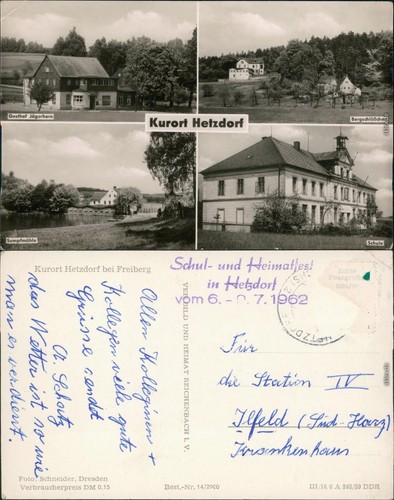 Gasthof Jägerhorn
Bergschlößchen
Kurort Hetzdorf
Schule
Kurort Hetzdorf bei Freiberg
Schul- und Heimatfest
in Hetzdorf
vom 6.- 8.7.1962
HETZDORF
VERLAG BILD UND HEIMAT REICHENBACH I. V.
Allen Kolleginnen +
Kollegen viele gute
Grüsse sendet
A. Schatz
das Wetter ist so wie
man es verdient.
Für
die Station IV
Ilfeld (Süd-Harz)
Krankenhaus
Foto: Schneider, Dresden
Verbraucherpreis DM 0,15
Best.-Nr. 14/2900